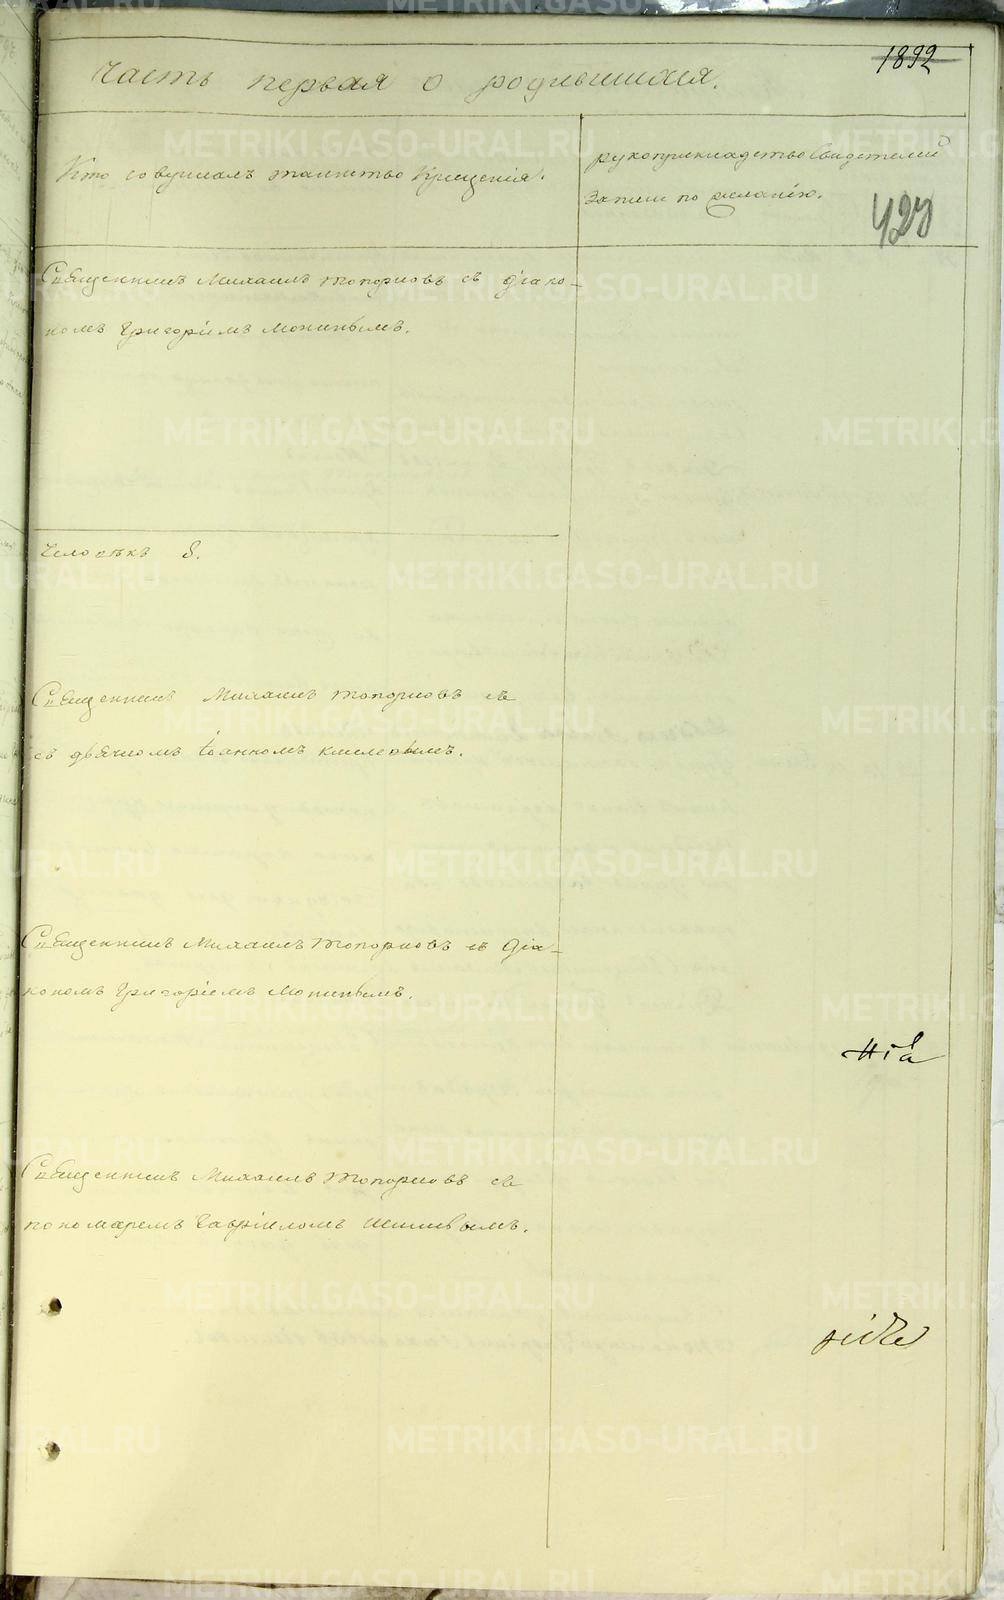 1892
Часть первая о родившихся.
Кто совершалъ таинство Крещенія.
рукоприкладство Свидетелей
Записи по желанію.
427
Священникъ Михаилъ Топорковъ съ діако-
номъ Григоріемъ
Человѣкъ 8.
Священникъ Михаилъ Топорковъ съ
съ дьячкомъ Іоанномъ Киселевымъ.
Священникъ Михаилъ Топорковъ съ Діа-
кономъ Григоріемъ
Священникъ Михаилъ Топорковъ съ
пономаремъ Гавріиломъ
METRIKI.GASO-URAL.RU